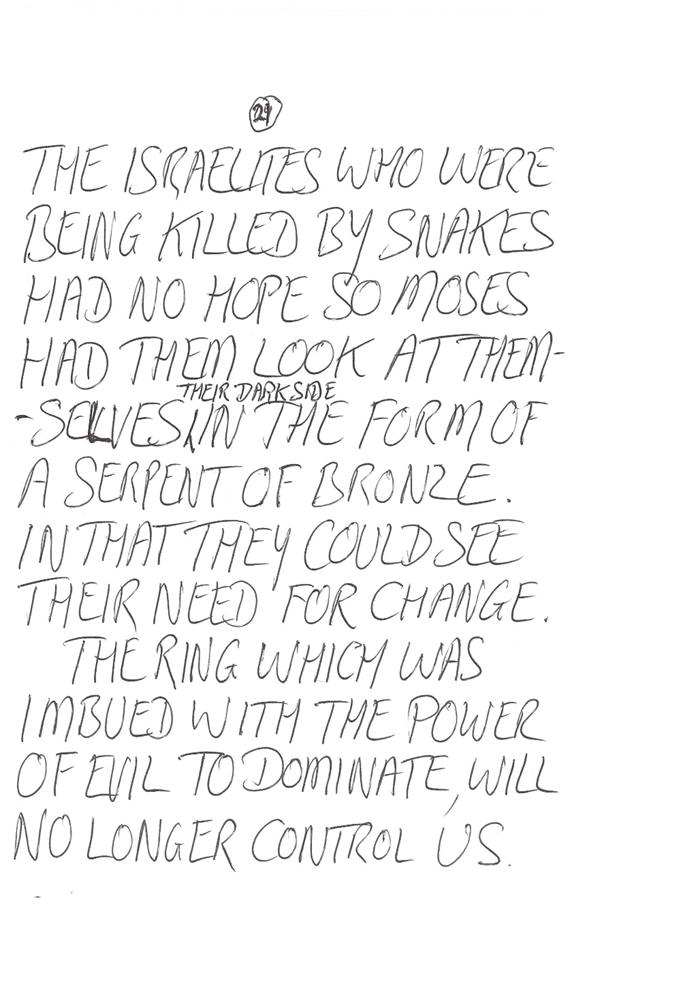 29
THE ISRAELITES WHO WERE
BEING KILLED BY SNAKES
HAD NO HOPE SO MOSES
HAD THEM LOOK AT THEM-
THEIR DARK SIDE
-SELVES, IN THE FORM OF
A SERPENT OF BRONZE.
IN THAT THEY COULD SEE
THEIR NEED FOR CHANGE.
THE RING WHICH WAS
IMBUED WITH THE POWER
OF EVIL TO DOMINATE, WILL
NO LONGER CONTROL US.